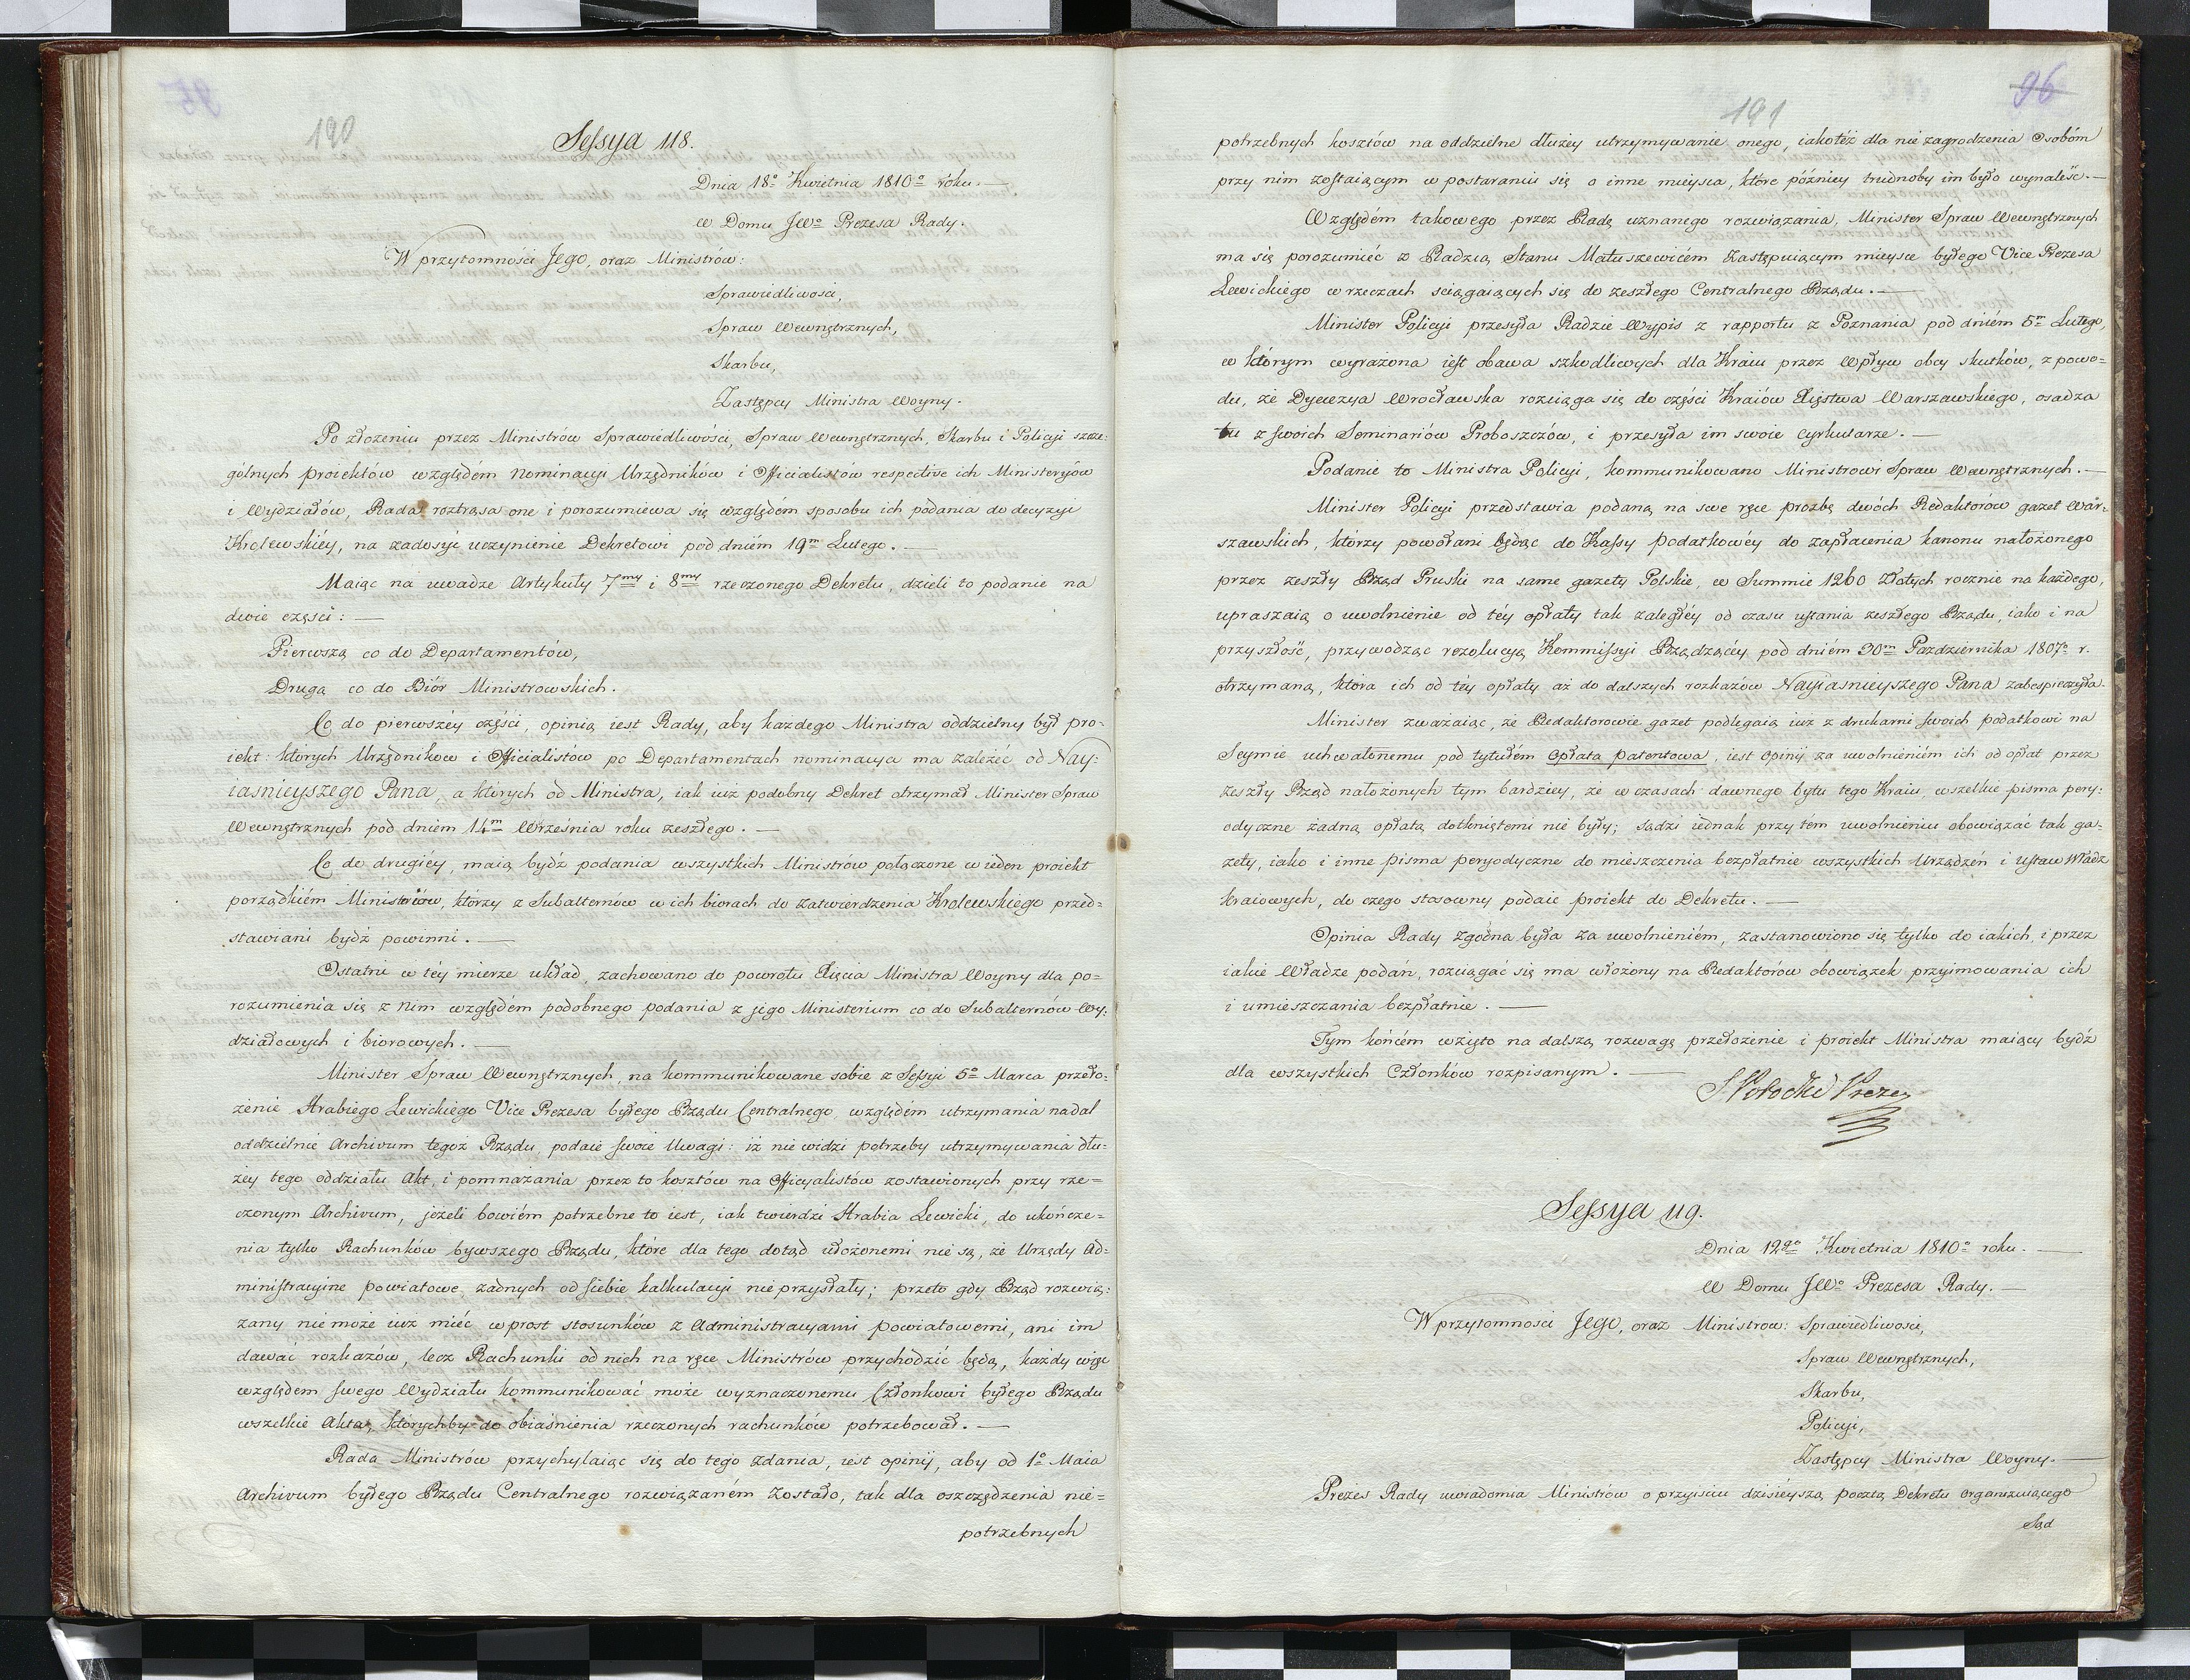 190
Sessya 118.
Dnia 18º Kwietnia 1810º roku. —
w Domu JWº Prezesa Rady.
W przytomności Jego, oraz Ministrów:
Sprawiedliwości,
Spraw Wewnętrznych,
Skarbu,
Zastępcy Ministra Woyny.
Po złożeniu przez Ministrów Sprawiedliwości, Spraw Wewnętrznych, Skarbu i Policyi szcze-
gólnych proiektów względém nominacyi Urzędników i Officialistów respective ich Ministeryów
i Wydziałów, Rada roztrąsa one i porozumiewa się względém sposobu ich podania do decyzyi
Królewskiéy, na zadosyć uczynienie Dekretowi pod dniém 19m Lutego. —
Maiąc na uwadze Artykuły 7my i 8my rzeczonego Dekretu, dzieli to podanie na
dwie części: —
Pierwszą co do Departamentów,
Drugą co do Biór Ministrowskich.
Co do pierwszéy części, opinią iest Rady, aby każdego Ministra oddzielny był pro-
iekt: których Urzędników i Officialistów po Departamentach nominacya ma zależéć od Nay-
iaśnieyszego Pana, a których od Ministra, iak iuż podobny Dekret otrzymał Minister Spraw
Wewnętrznych pod dniem 14m Września roku zeszłego. —
Co do drugiéy, maią bydź podania wszystkich Ministrów połączone w ieden proiekt
porządkiém Ministrów, którzy z Subalternów w ich biorach do zatwierdzenia Królewskiego przed-
stawiani bydź powinni. —
Ostatni w téy mierze układ, zachowano do powrotu Xięcia Ministra Woyny dla po-
rozumienia się z Nim względém podobnego podania z jego Ministerium co do Subalternów Wy-
działowych i biorowych. —
Minister Spraw Wewnętrznych, na kommunikowane sobie z Sessyi 5º Marca przeło-
żenie Hrabiego Lewickiego Vice Prezesa byłego Rządu Centralnego, względém utrzymania nadal
oddzielnie Archivum tegoż Rządu, podaie swoie Uwagi: iż nie widzi potrzeby utrzymywania dłu-
żéy tego oddziału Akt, i pomnażania przez to kosztów na Officyalistów zostawionych przy rze-
czonym Archivum, jeżeli bowiém potrzebne to iest, iak twierdzi Hrabia Lewicki, do ukończe-
nia tylko Rachunków bywszego Rządu, które dla tego dotąd ułożonemi nie są, że Urzędy Ad-
ministracyine powiatowe, żadnych od siebie kalkulacyi nie przysłały; przeto gdy Rząd rozwią-
zany nie może iuż miéć wprost stosunków z Administracyami powiatowemi, ani im
dawać rozkazów, lecz Rachunki od nich na ręce Ministrów przychodzić będą, każdy więc
względem swego Wydziału kommunikować może wyznaczonemu Członkowi byłego Rządu
wszelkie Akta, których by do obiaśnienia rzeczonych rachunków potrzebował. —
Rada Ministrów przychylaiąc się do tego zdania, iest opinij, aby od 1º Maia
Archivum byłego Rządu Centralnego rozwiązaném zostało, tak dla oszczędzenia nie-
potrzebnych
96
191
potrzebnych kosztów na oddzielne dłużéy utrzymywanie onego, iakotéż dla nie zagrodzenia Osobóm
przy nim zostaiącym w postaraniu się o inne mieysca, które późniéy trudnoby im było wynaleść. —
Względém takowego przez Radę uznanego rozwiązania, Minister Spraw Wewnętrznych
ma się porozumiéć z Radzcą Stanu Matuszewiczém zastępuiącym mieysce byłego Vice Prezesa
Lewickiego w rzeczach sciągaiących się do zeszłego Centralnego Rządu. —
Minister Policyi przesyła Radzie Wypis z rapportu z Poznania pod dniém 5m Lutego,
w którym wyrażona iest obawa szkodliwych dla Kraiu przez wpływ obcy skutków, z powo-
du, że Dyecezya Wrocławska rozciąga się do części Kraiów Xięstwa Warszawskiego, osadza
tu z swoich Seminariów Proboszczów, i przesyła im swoie cyrkularze. —
Podanie to Ministra Policyi, kommunikowano Ministrowi Spraw Wewnętrznych. —
Minister Policyi przedstawia podaną na swe ręce prozbę dwóch Redaktorów gazet War-
szawskich, którzy powołani będąc do Kassy podatkowéy do zapłacenia kanonu nałożonego
przez zeszły Rząd Pruski na same gazety Polskie, w Summie 1260 Złotych rocznie na każdego,
upraszaią o uwolnienie od téy opłaty tak zaległéy od czasu ustania zeszłego Rządu, iako i na
przyszłość, przywodząc rezolucyą Kommissyi Rządzącéy pod dniém 30m Pazdziernika 1807º r.
otrzymaną, która ich od téy opłaty aż do dalszych rozkazów Nayiasnieyszego Pana zabespieczyła.
Minister zważaiąc, że Redaktorowie gazet podlegaią iuż z drukarni swoich podatkowi na
Seymie uchwalonemu pod tytułém opłata patentowa, iest opinij za uwolnieniém ich od opłat przez
zeszły Rząd nałożonych tym bardziéy, że w czasach dawnego bytu tego Kraiu, wszelkie pisma pery-
odyczne żadną opłatą dotkniętemi nie były; sądzi iednak przy tém uwolnieniu obowiązać tak ga-
zety, iako i inne pisma peryodyczne do mieszczenia bezpłatnie wszystkich Urządzeń i Ustaw Władz
kraiowych, do czego stosowny podaie proiekt do Dekretu. —
Opinia Rady zgodna była za uwolnieniém, zastanowiono się tylko do iakich, i przez
iakie Władze podań, rozciągać się ma włożony na Redaktorów obowiązek przyimowania ich
i umieszczania bezpłatnie. —
Tym końcém wzięto na dalszą rozwagę przełożenie i proiekt Ministra maiący bydź
dla wszystkich Członków rozpisanym. —
S. Potocki Prezes
Sessya 119.
Dnia 19go Kwietnia 1810º roku. —
w Domu JWº Prezesa Rady. —
W przytomności Jego, oraz Ministrow: Sprawiedliwości,
Spraw Wewnętrznych,
Skarbu,
Policyi,
Zastępcy Ministra Woyny. —
Prezes Rady uwiadomia Ministrów o przyiściu dzisieyszą pocztą Dekretu organizuiącego
Sąd